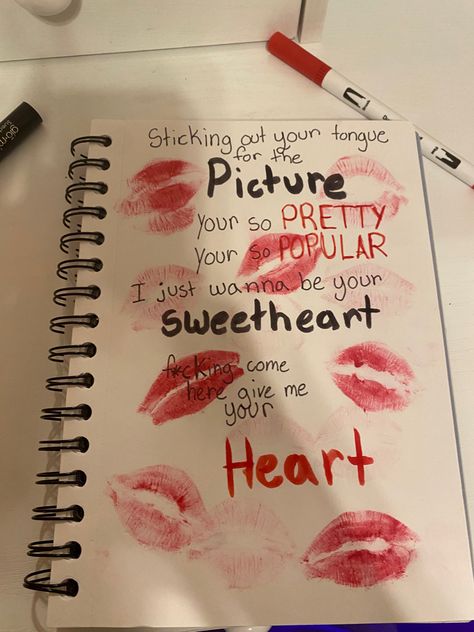 Sticking out your tongue
for the
Picture
Your so PRETTY
Your so POPULAR
I just wanna be your
sweetheart
f*cking come
here give me
your
Heart